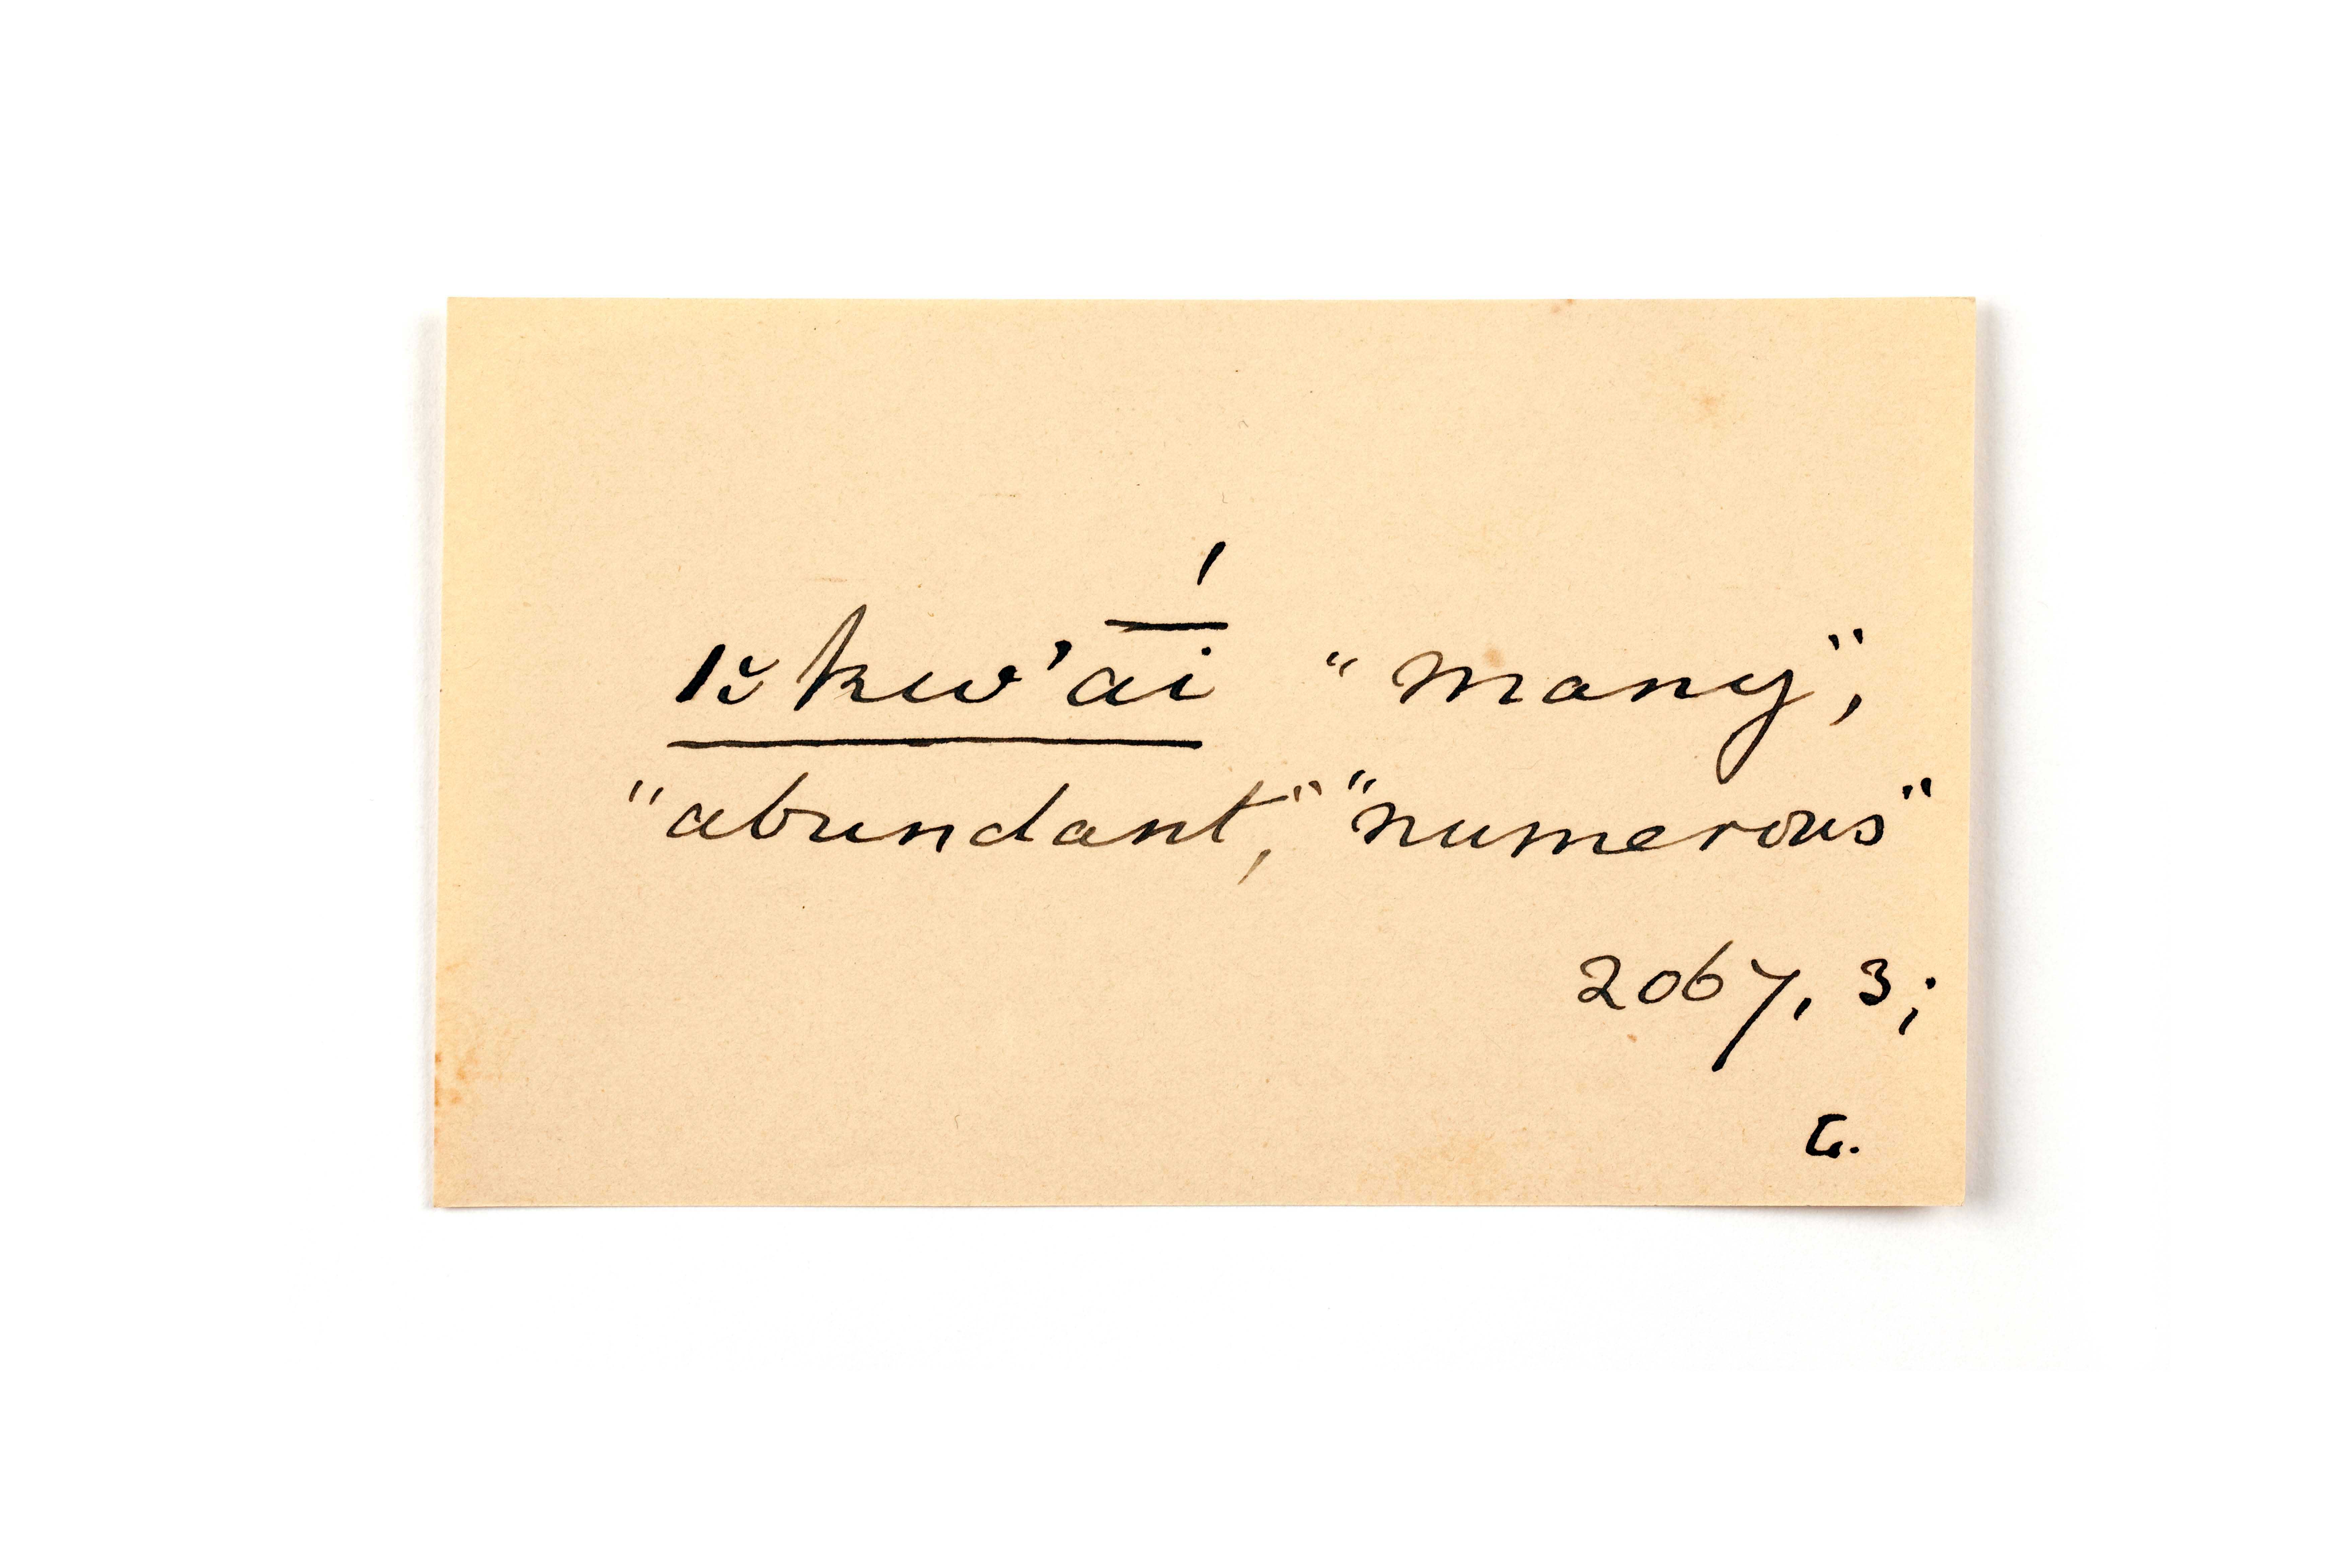 ıškw'aī́ "many",
"abundant," "numerous"
2067, 3;
G.